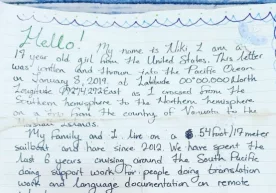 Hello! My name is Niki. I am a
17 year old girl from the United States. This letter
was written and thrown into the Pacific Ocean
on January 3, 2019. at Latitude 00°00.000 North
Longitude East as I crossed from the
Southern hemisphere to the Northern hemisphere
on a from the country of Vanuatu to the
Islands
My family and I live on a 54foot/17meter
sailboat and have since 2012. We have spent the
last 6 years cruising around the South Pacific
doing support work for people doing translation
work and language documentation on remote